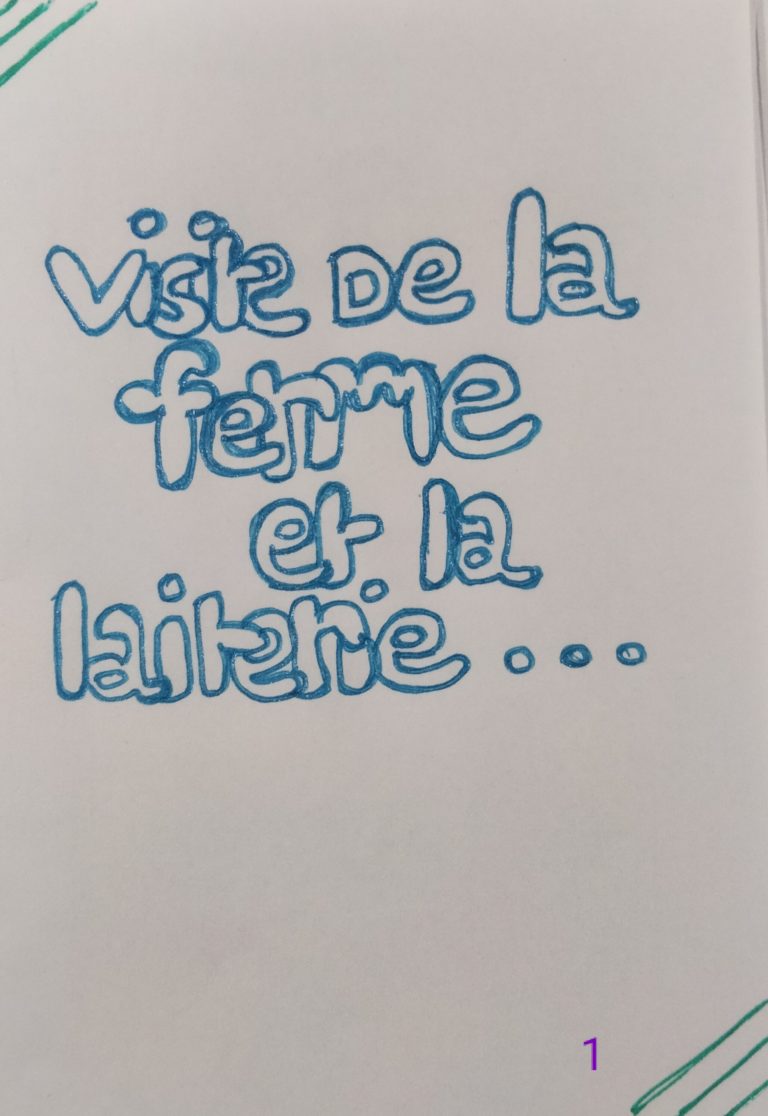 visite De la
ferme
et la
laiterie...
1